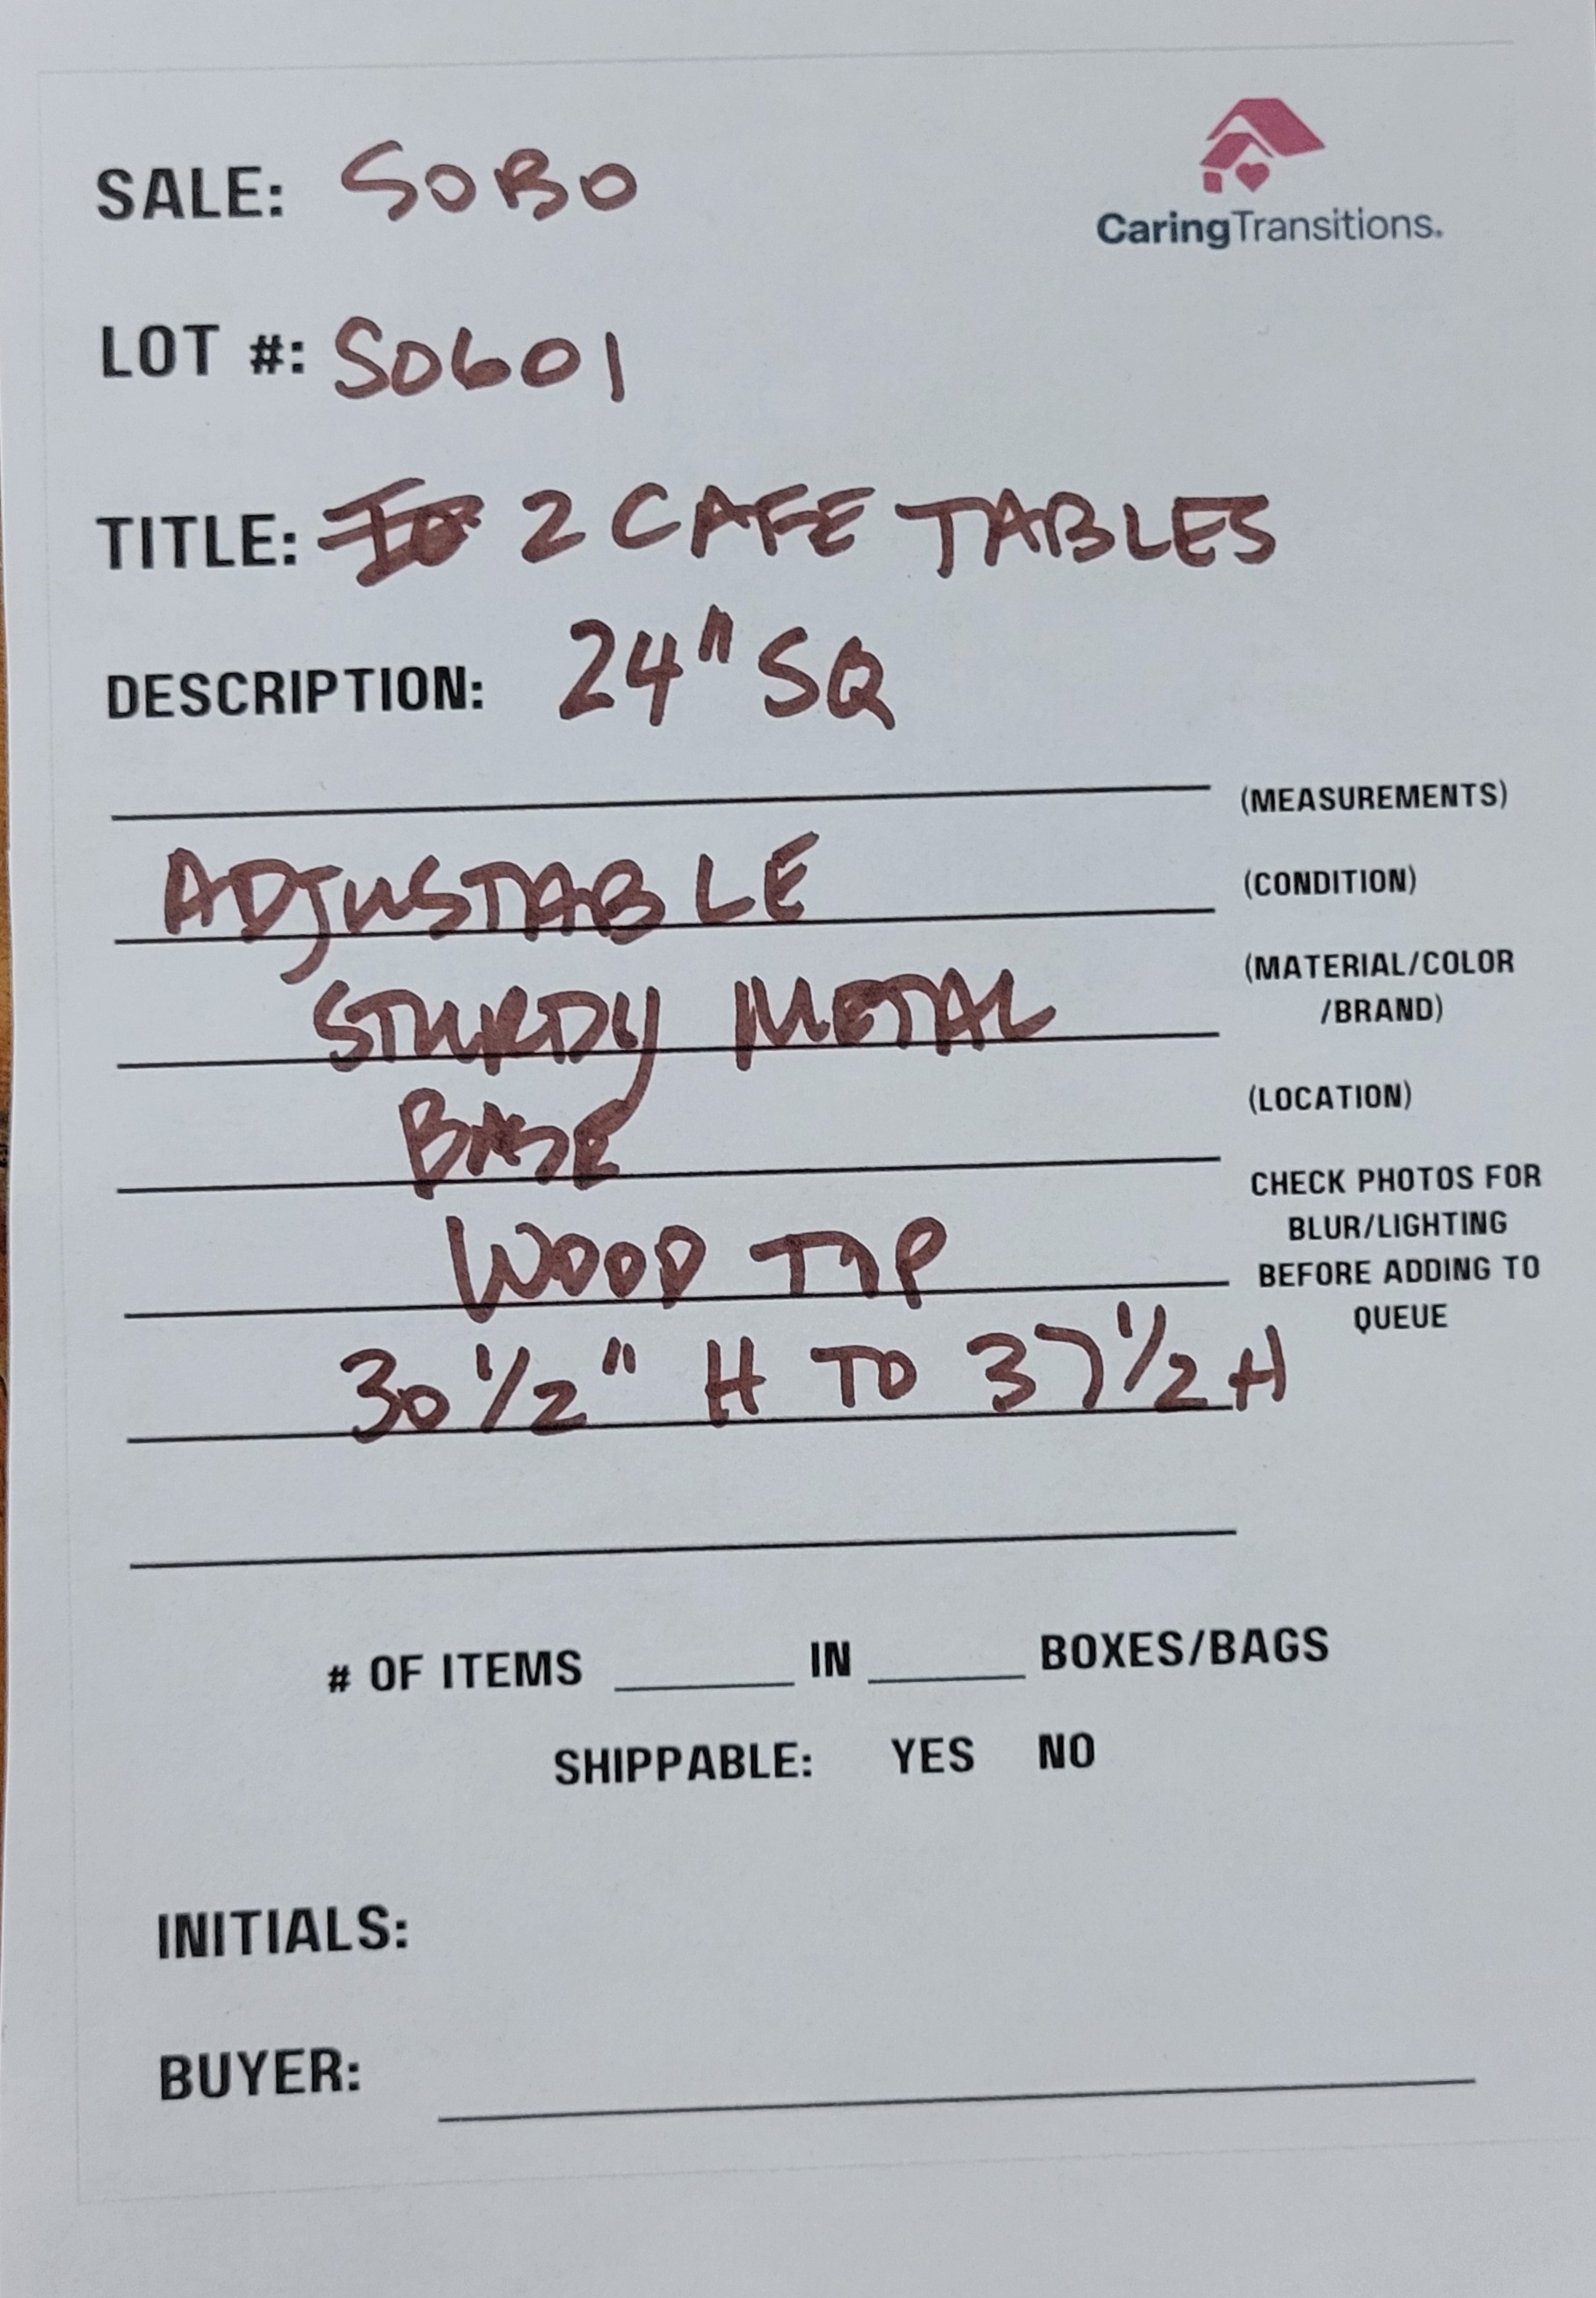 CaringTransitions.
SALE: SOBO
LOT #: SO601
TITLE: 2 CAFE TABLES
DESCRIPTION: 24" SQ
(MEASUREMENTS)
ADJUSTABLE (CONDITION)
STURDY METAL (MATERIAL/COLOR
/BRAND)
BASE (LOCATION)
WOOD TOP
CHECK PHOTOS FOR
BLUR/LIGHTING
BEFORE ADDING TO
QUEUE
30 1/2" H TO 37 1/2 H
# OF ITEMS ______ IN ______ BOXES/BAGS
SHIPPABLE: YES NO
INITIALS:
BUYER: